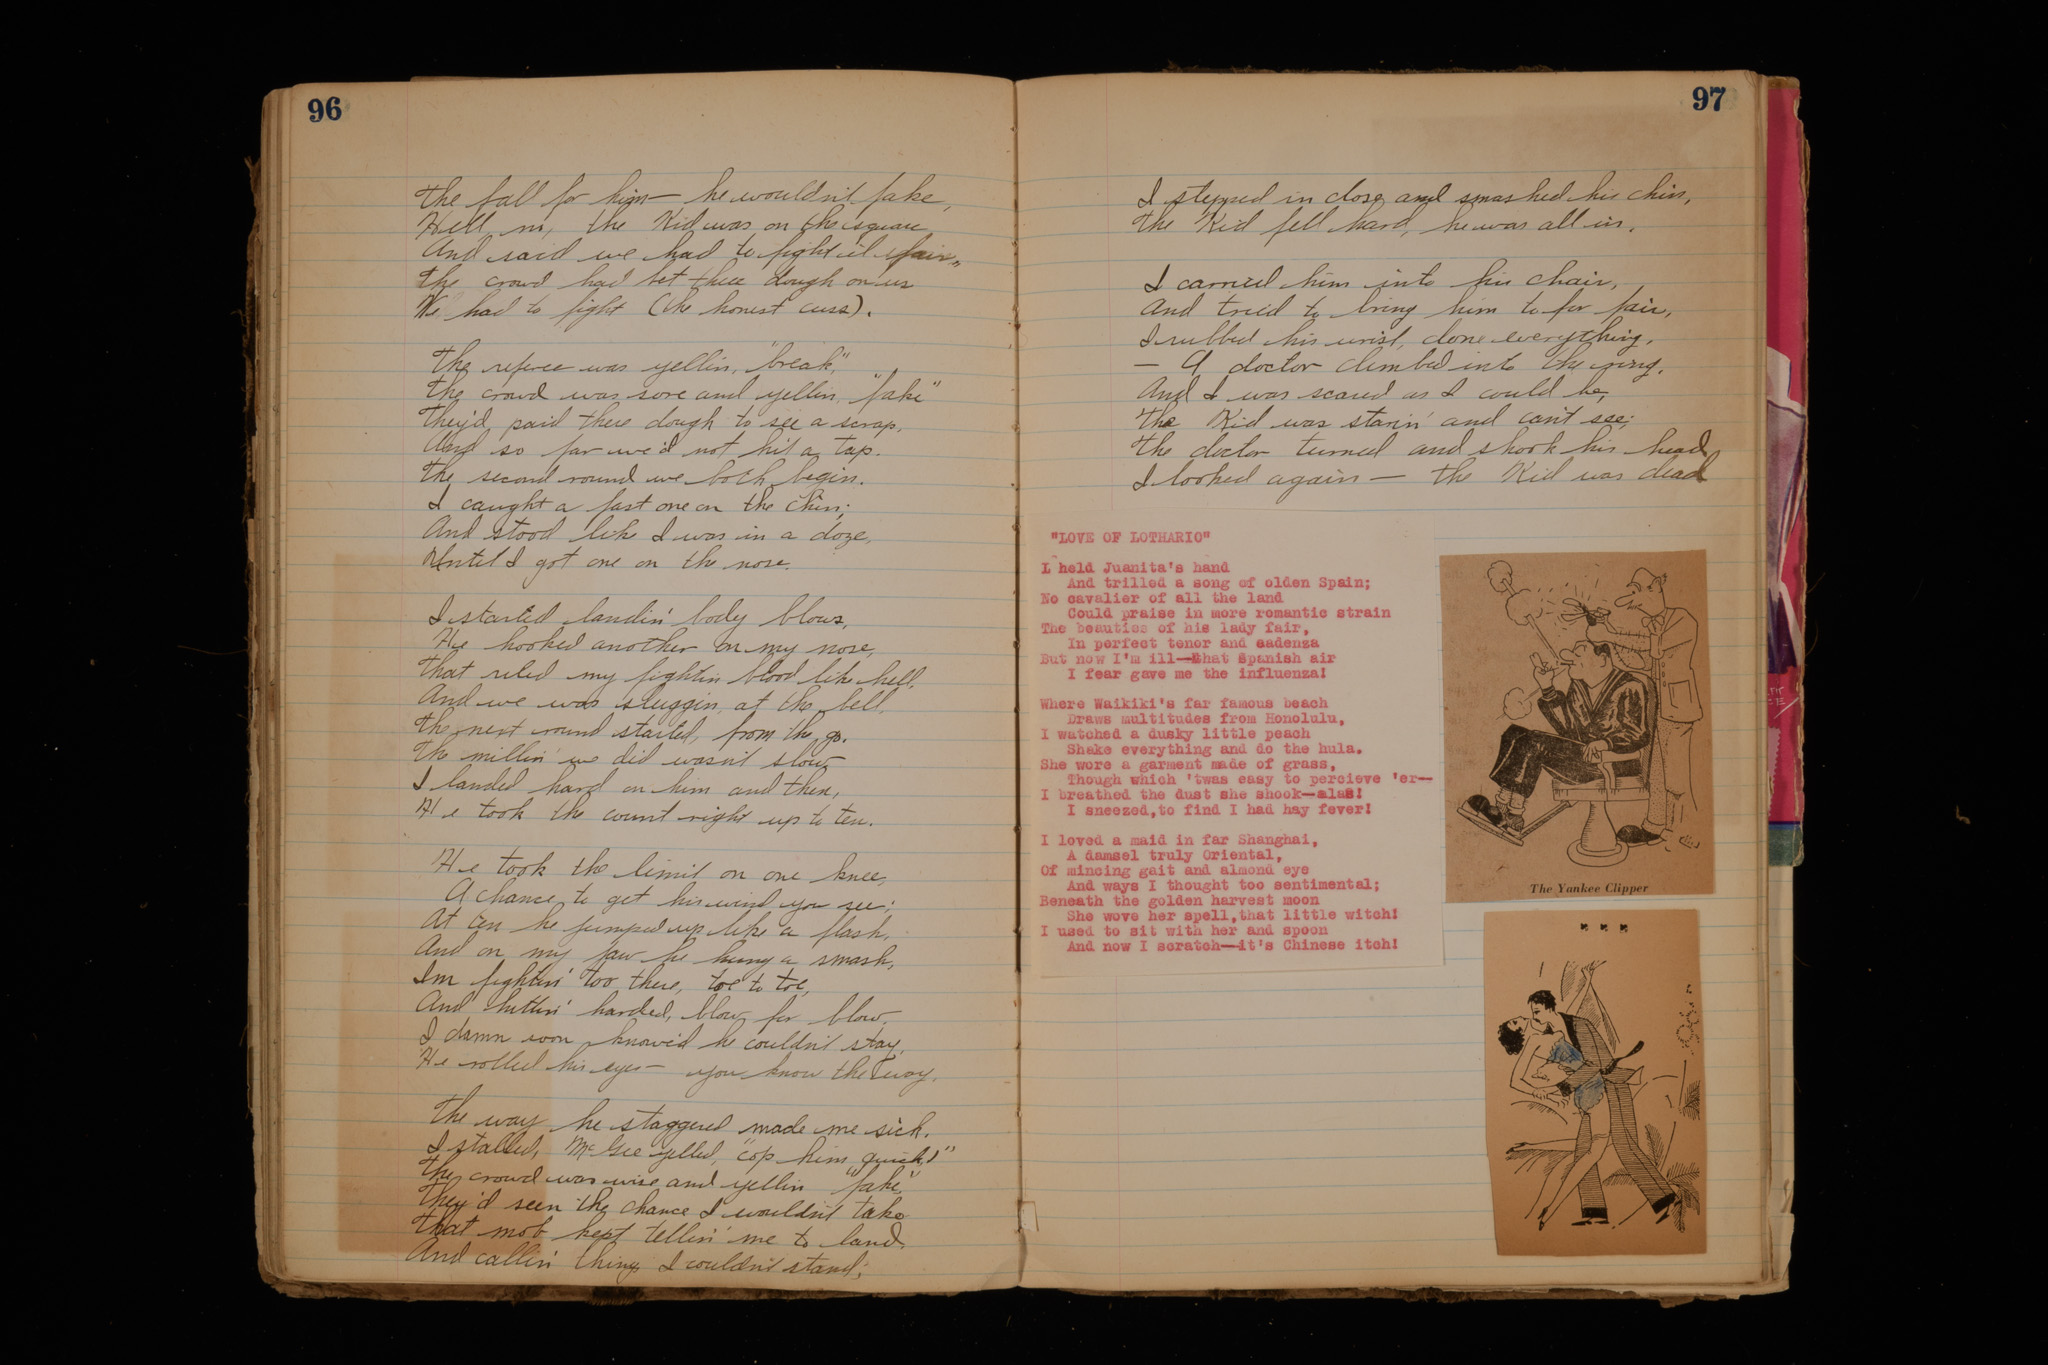 96
The fall for him — he wouldn't fake,
Hell, no, the Kid was on the square
And said we had to fight it fair,
The crowd had bet thee dough on us
We had to fight (the honest cuss).
The referee was yellin, "break,"
The crowd was sore and yellin, "fake"
They'd paid there dough to see a scrap,
And so far we'd not hit a tap.
The second round we both begin.
I caught a fast one on the chin;
And stood like I was in a doze,
Until I got one on the nose.
I started landin' body blows,
He hooked another on my nose,
That riled my fightin blood like hell,
And we was sluggin, at the bell.
The next round started, from the go.
The millin' we did wasn't slow,
I landed hard on him and then,
He took the count right up to ten.
He took the limit on one knee,
A chance to get his wind you see;
At ten he jumped up like a flash,
And on my jaw he hung a smash,
Im fightin' too there, toe to toe,
And hittin' harded, blow for blow.
I damn soon knowed he couldn't stay,
He rolled his eyes — you know the way.
The way he staggered made me sick.
I stalled, McGee yelled, "cop him quick!"
The crowd was wise and yellin "fake"
They'd seen the chance I wouldn't take
That mob kept tellin' me to land,
And callin' things I couldn't stand;
97
I stepped in close and smashed his chin,
The Kid fell hard, he was all in.
I carried him into his chair,
And tried to bring him to for fair,
I rubbed his wrist, done everything,
— A doctor climbed into the ring,
And I was scared as I could be,
The Kid was starin' and can't see;
The doctor turned and shook his head
I looked again — the Kid was dead
"LOVE OF LOTHARIO"
I held Juanita's hand
And trilled a song of olden Spain;
No cavalier of all the land
Could praise in more romantic strain
The beauties of his lady fair,
In perfect tenor and cadenza
But now I'm ill—that Spanish air
I fear gave me the influenza!
Where Waikiki's far famous beach
Draws multitudes from Honolulu,
I watched a dusky little peach
Shake everything and do the hula.
She wore a garment made of grass,
Though which 'twas easy to percieve 'er—
I breathed the dust she shook—alas!
I sneezed,to find I had hay fever!
I loved a maid in far Shanghai,
A damsel truly Oriental,
Of mincing gait and almond eye
And ways I thought too sentimental;
Beneath the golden harvest moon
She wove her spell,that little witch!
I used to sit with her and spoon
And now I scratch—it's Chinese itch!
The Yankee Clipper